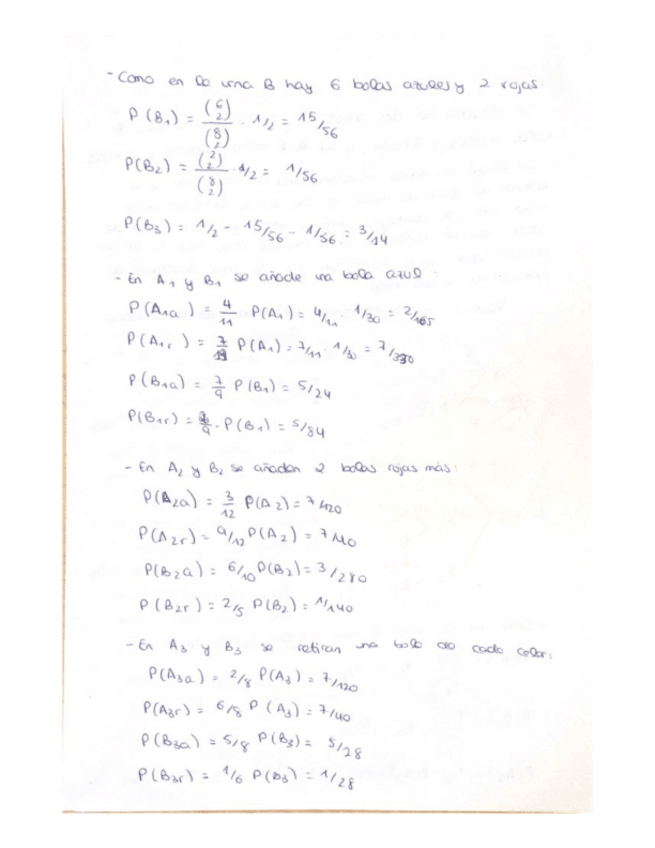 - Como en la urna B hay 6 bolas azules y 2 rojas:
P(B₁) = \frac{\binom{6}{2}}{\binom{8}{2}} · 1/2 = 15/56
P(B₂) = \frac{\binom{2}{2}}{\binom{8}{2}} · 1/2 = 1/56
P(B₃) = 1/2 - 15/56 - 1/56 = 3/14
- En A₁ y B₁ se añade una bola azul:
P(A₁a) = \frac{4}{11} P(A₁) = 4/11 · 1/30 = 2/165
P(A₁r) = \frac{7}{11} P(A₁) = 7/11 · 1/30 = 7/330
P(B₁a) = \frac{7}{9} P(B₁) = 5/24
P(B₁r) = \frac{2}{9} · P(B₁) = 5/84
- En A₂ y B₂ se añaden 2 bolas rojas más:
P(A₂a) = \frac{3}{12} P(A₂) = 7/120
P(A₂r) = 9/12 P(A₂) = 7/40
P(B₂a) = 6/10 P(B₂) = 3/280
P(B₂r) = 2/5 P(B₂) = 1/140
- En A₃ y B₃ se retiran una bola de cada color:
P(A₃a) = 2/8 P(A₃) = 7/120
P(A₃r) = 6/8 P(A₃) = 7/40
P(B₃a) = 5/8 P(B₃) = 5/28
P(B₃r) = 1/6 P(B₃) = 1/28